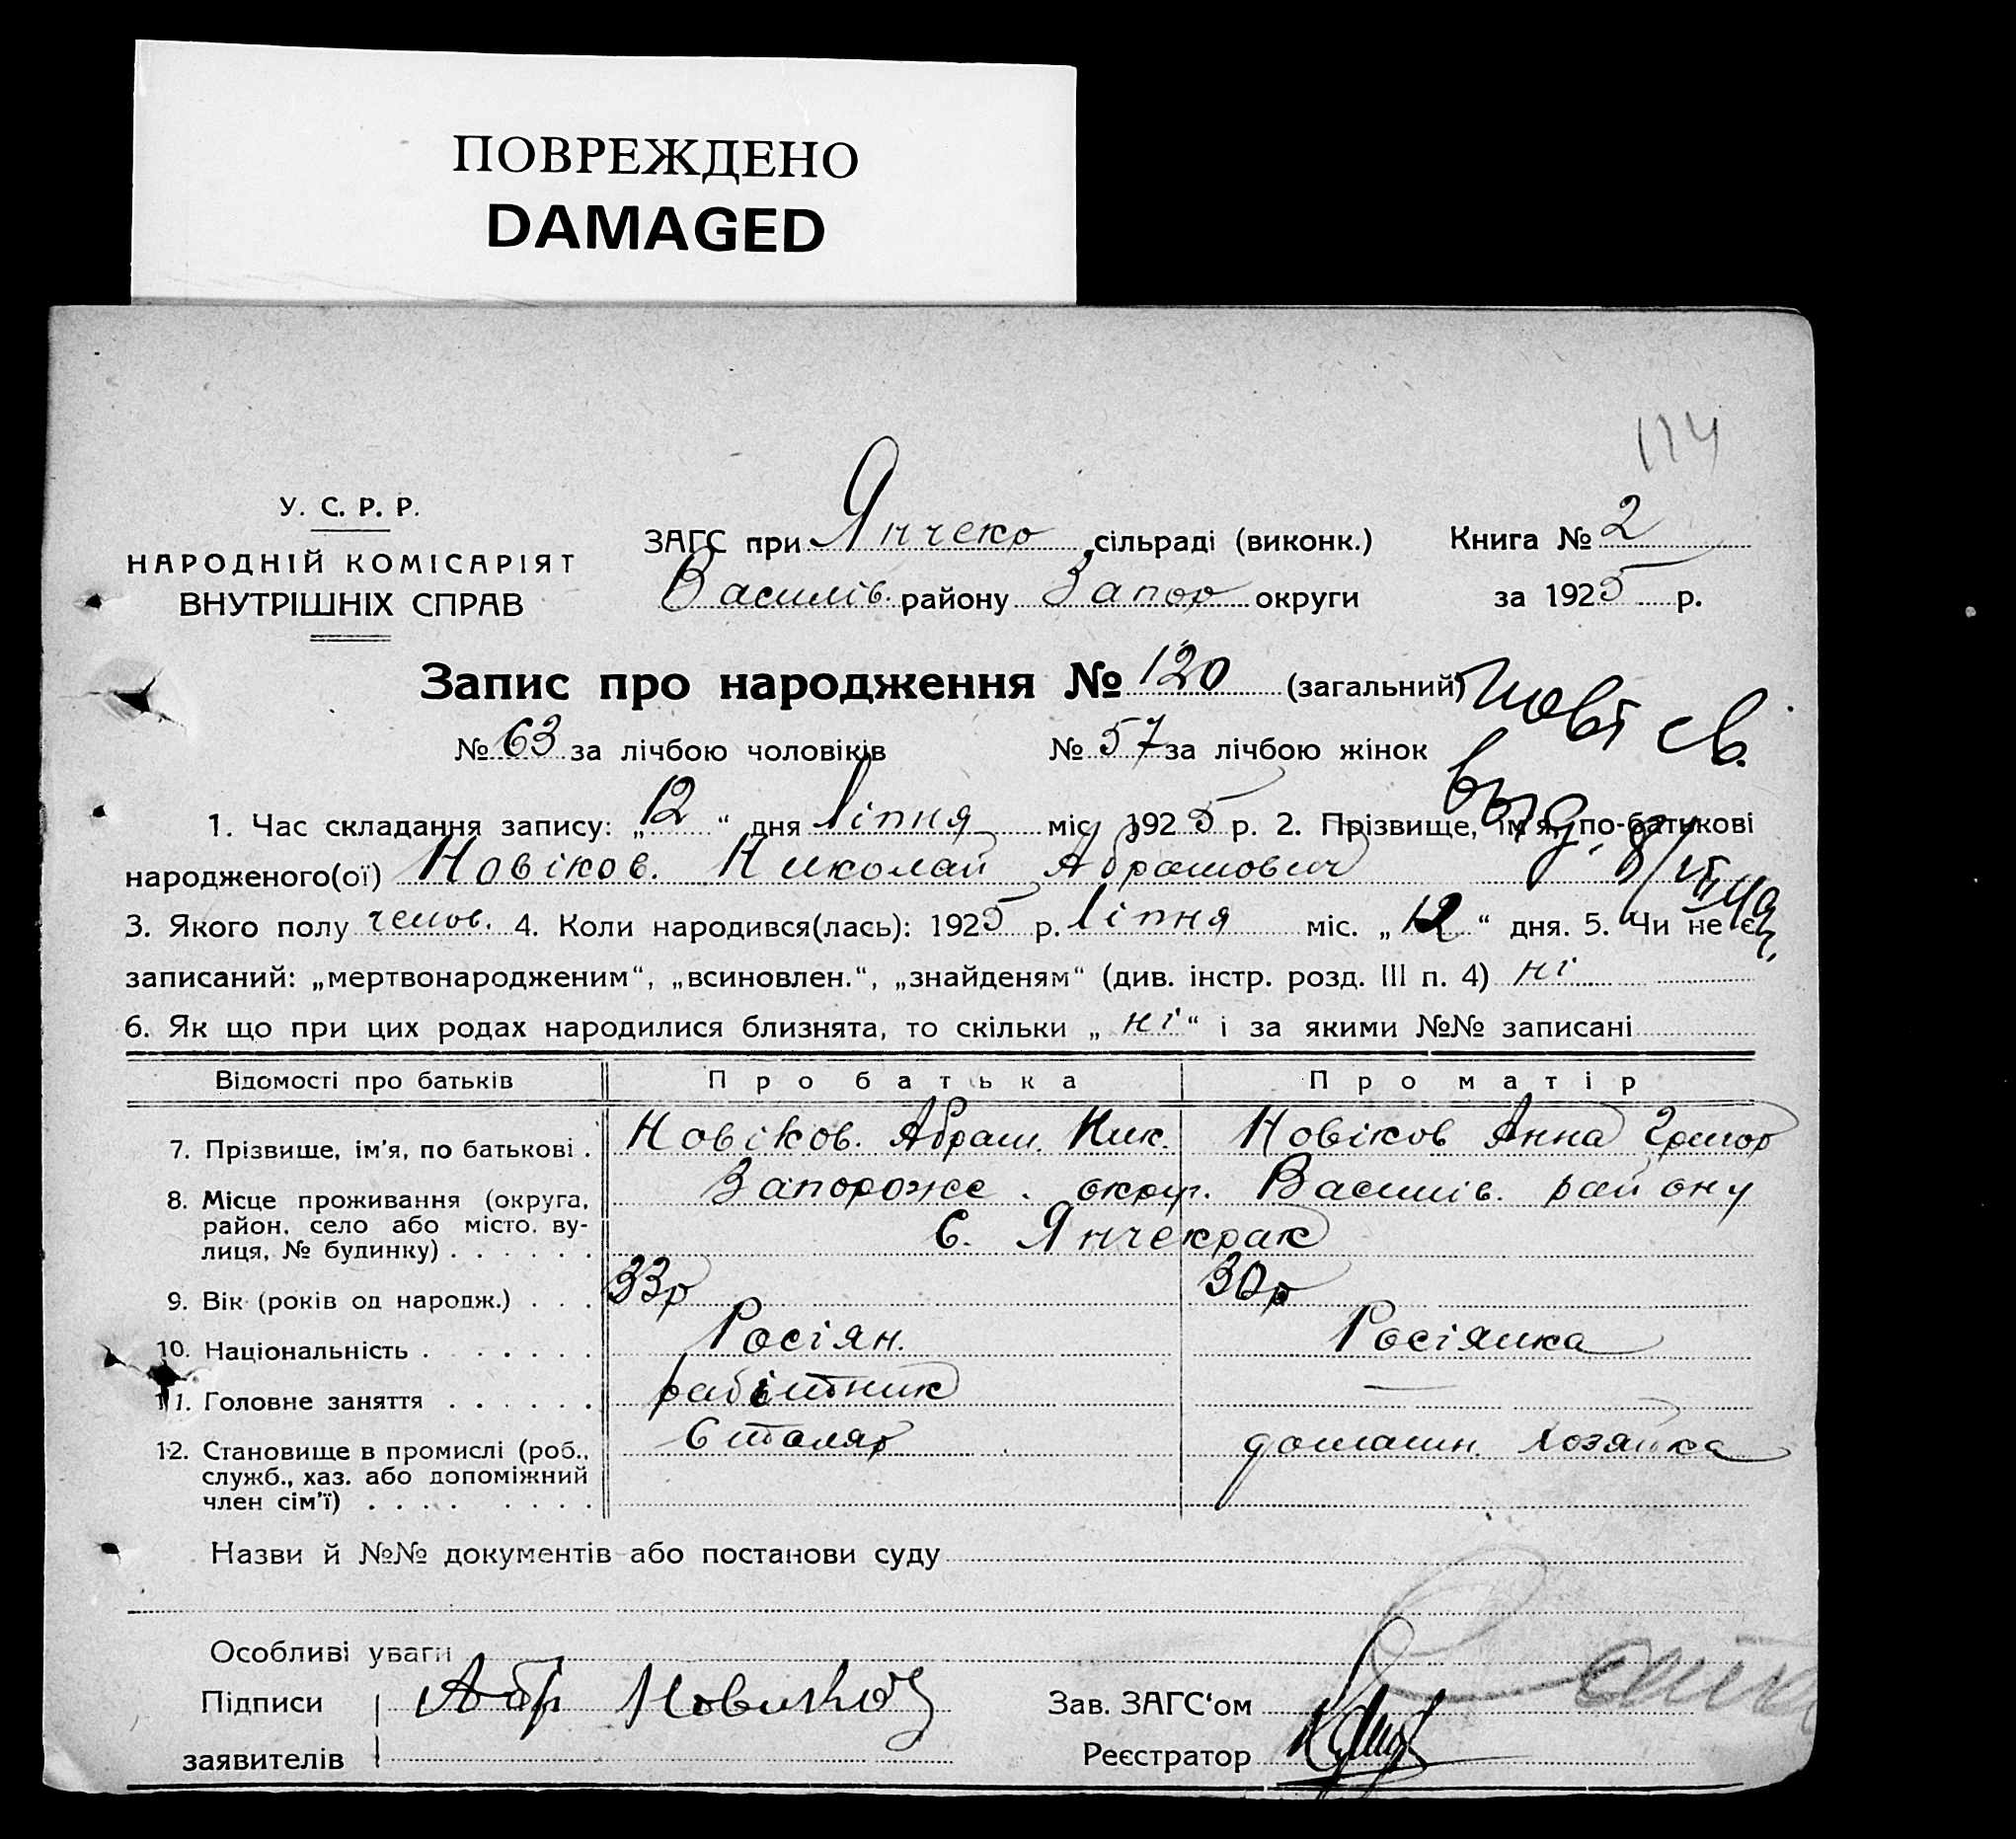 ПОВРЕЖДЕНО
DAMAGED
114
У. С. Р. Р.
НАРОДНІЙ КОМІСАРІЯТ
ВНУТРІШНІХ СПРАВ
ЗАГС при Янчекр сільраді (виконк.) Книга № 2
Василів. району Запор округи за 1925 р.
Запис про народження № 120 (загальний)
№ 63 за лічбою чоловіків № 57 за лічбою жінок
повт св.
выд. 8/VII
1. Час складання запису: „12“ дня Ліпня міс 1925 р. 2. Прізвище, ім'я, по-батькові
народженого(ої) Новіков. Николай Абрамович
3. Якого полу челов. 4. Коли народився(лась): 1925 р. Ліпня міс. „12“ дня. 5. Чи не є
записаний: „мертвонародженим“, „всиновлен.“, „знайденям“ (див. інстр. розд. III п. 4) ні
6. Як що при цих родах народилися близнята, то скільки „ні“ і за якими №№ записані
Відомості про батьків Про батька Про матір
7. Прізвище, ім'я, по батькові . Новіков. Абрам. Ник. Новіков Анна Григор
8. Місце проживання (округа, район, село або місто, ву-
лиця, № будинку) . . . . . . Запорожс. окру. Василів. району
С. Янчекрак
9. Вік (років од народж.) . . . 33р 30р
10. Національність . . . . . . Росіян. Росіянка
11. Головне заняття . . . . . . рабітник —
12. Становище в промислі (роб.,
служб., хаз. або допоміжний
член сім'ї) . . . . . . . . Столяр домашн. хозяйка
Назви й №№ документів або постанови суду
Особливі уваги
Підписи Абр Новиков Зав. ЗАГС'ом
заявителів Реєстратор